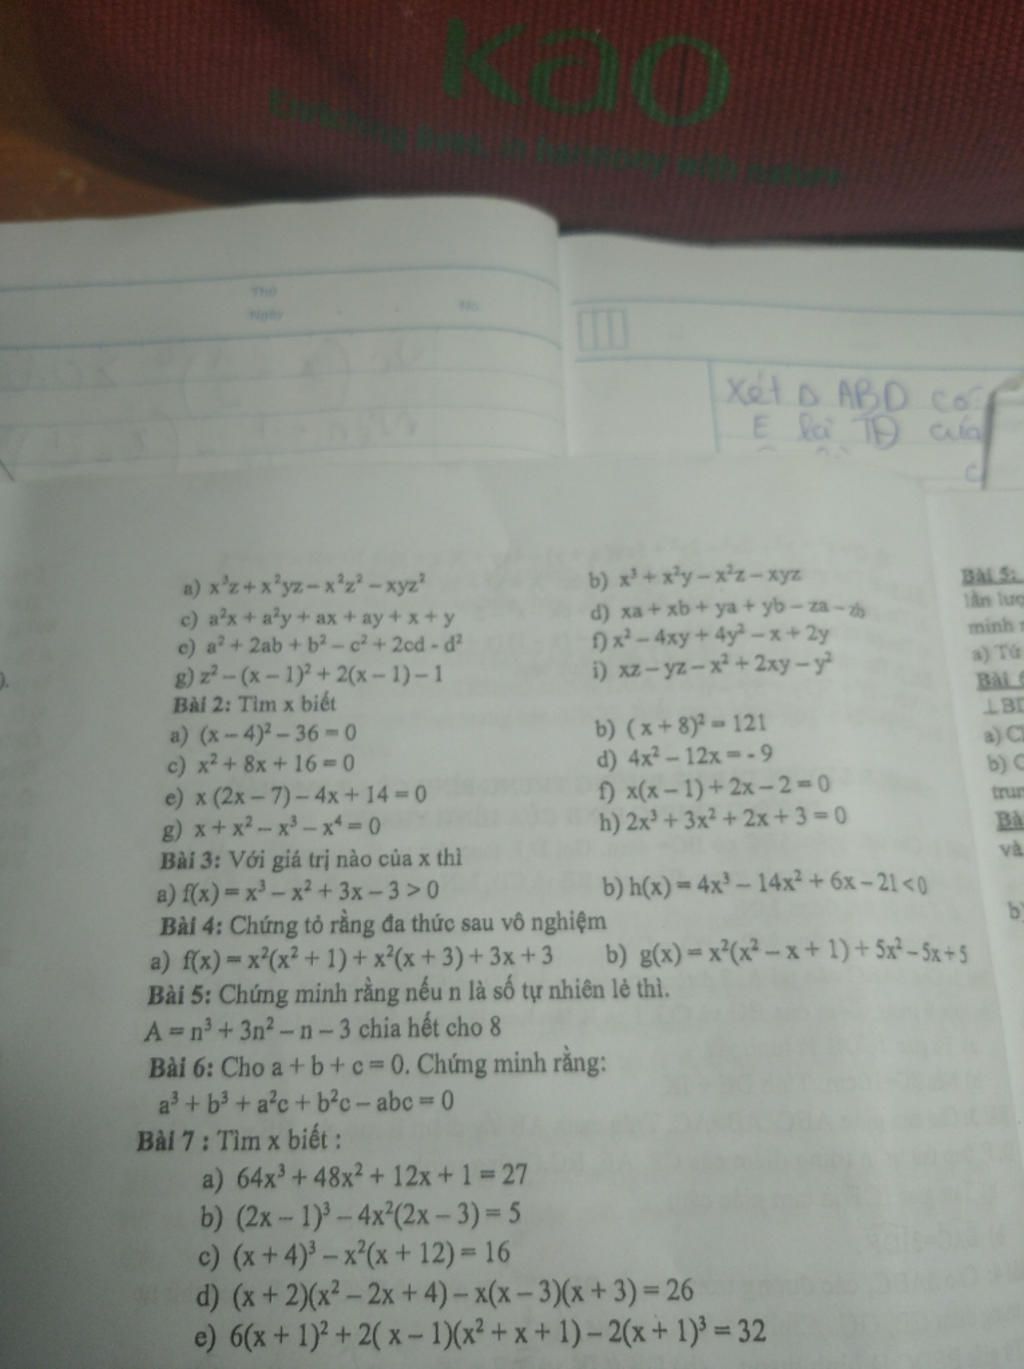 Kao
Enriching lives, in harmony with nature
Thứ
Ngày
No.
Xét Δ ABD có
E là TĐ của
c
a) x³z + x²yz – x²z² – xyz²
b) x³ + x²y – x²z – xyz
c) a²x + a²y + ax + ay + x + y
d) xa + xb + ya + yb – za – zb
e) a² + 2ab + b² – c² + 2cd - d²
f) x² – 4xy + 4y² – x + 2y
g) z² – (x – 1)² + 2(x – 1) – 1
i) xz – yz – x² + 2xy – y²
Bài 2: Tìm x biết
a) (x – 4)² – 36 = 0
b) ( x + 8)² = 121
c) x² + 8x + 16 = 0
d) 4x² – 12x = - 9
e) x (2x – 7) – 4x + 14 = 0
f) x(x – 1) + 2x – 2 = 0
g) x + x² – x³ – x⁴ = 0
h) 2x³ + 3x² + 2x + 3 = 0
Bài 3: Với giá trị nào của x thì
a) f(x) = x³ – x² + 3x – 3 > 0
b) h(x) = 4x³ – 14x² + 6x – 21 < 0
Bài 4: Chứng tỏ rằng đa thức sau vô nghiệm
a) f(x) = x²(x² + 1) + x²(x + 3) + 3x + 3
b) g(x) = x²(x² – x + 1) + 5x² – 5x + 5
Bài 5: Chứng minh rằng nếu n là số tự nhiên lẻ thì.
A = n³ + 3n² – n – 3 chia hết cho 8
Bài 6: Cho a + b + c = 0. Chứng minh rằng:
a³ + b³ + a²c + b²c – abc = 0
Bài 7 : Tìm x biết :
a) 64x³ + 48x² + 12x + 1 = 27
b) (2x – 1)³ – 4x²(2x – 3) = 5
c) (x + 4)³ – x²(x + 12) = 16
d) (x + 2)(x² – 2x + 4) – x(x – 3)(x + 3) = 26
e) 6(x + 1)² + 2( x – 1)(x² + x + 1) – 2(x + 1)³ = 32
Bài 5:
lần lượ
minh
a) Tứ
Bài
⊥BD
a) C
b) C
trun
Bà
và
b)